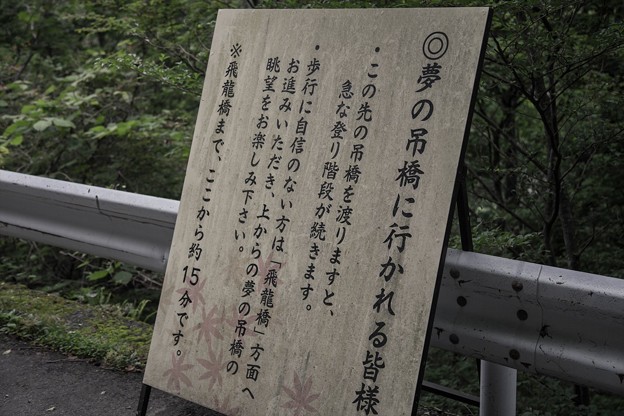 ◎夢の吊橋に行かれる皆様
・この先の吊橋を渡りますと、
急な登り階段が続きます。
・歩行に自信のない方は「飛龍橋」方面へ
お進みいただき、上からの夢の吊橋の
眺望をお楽しみ下さい。
※飛龍橋まで、ここから約15分です。